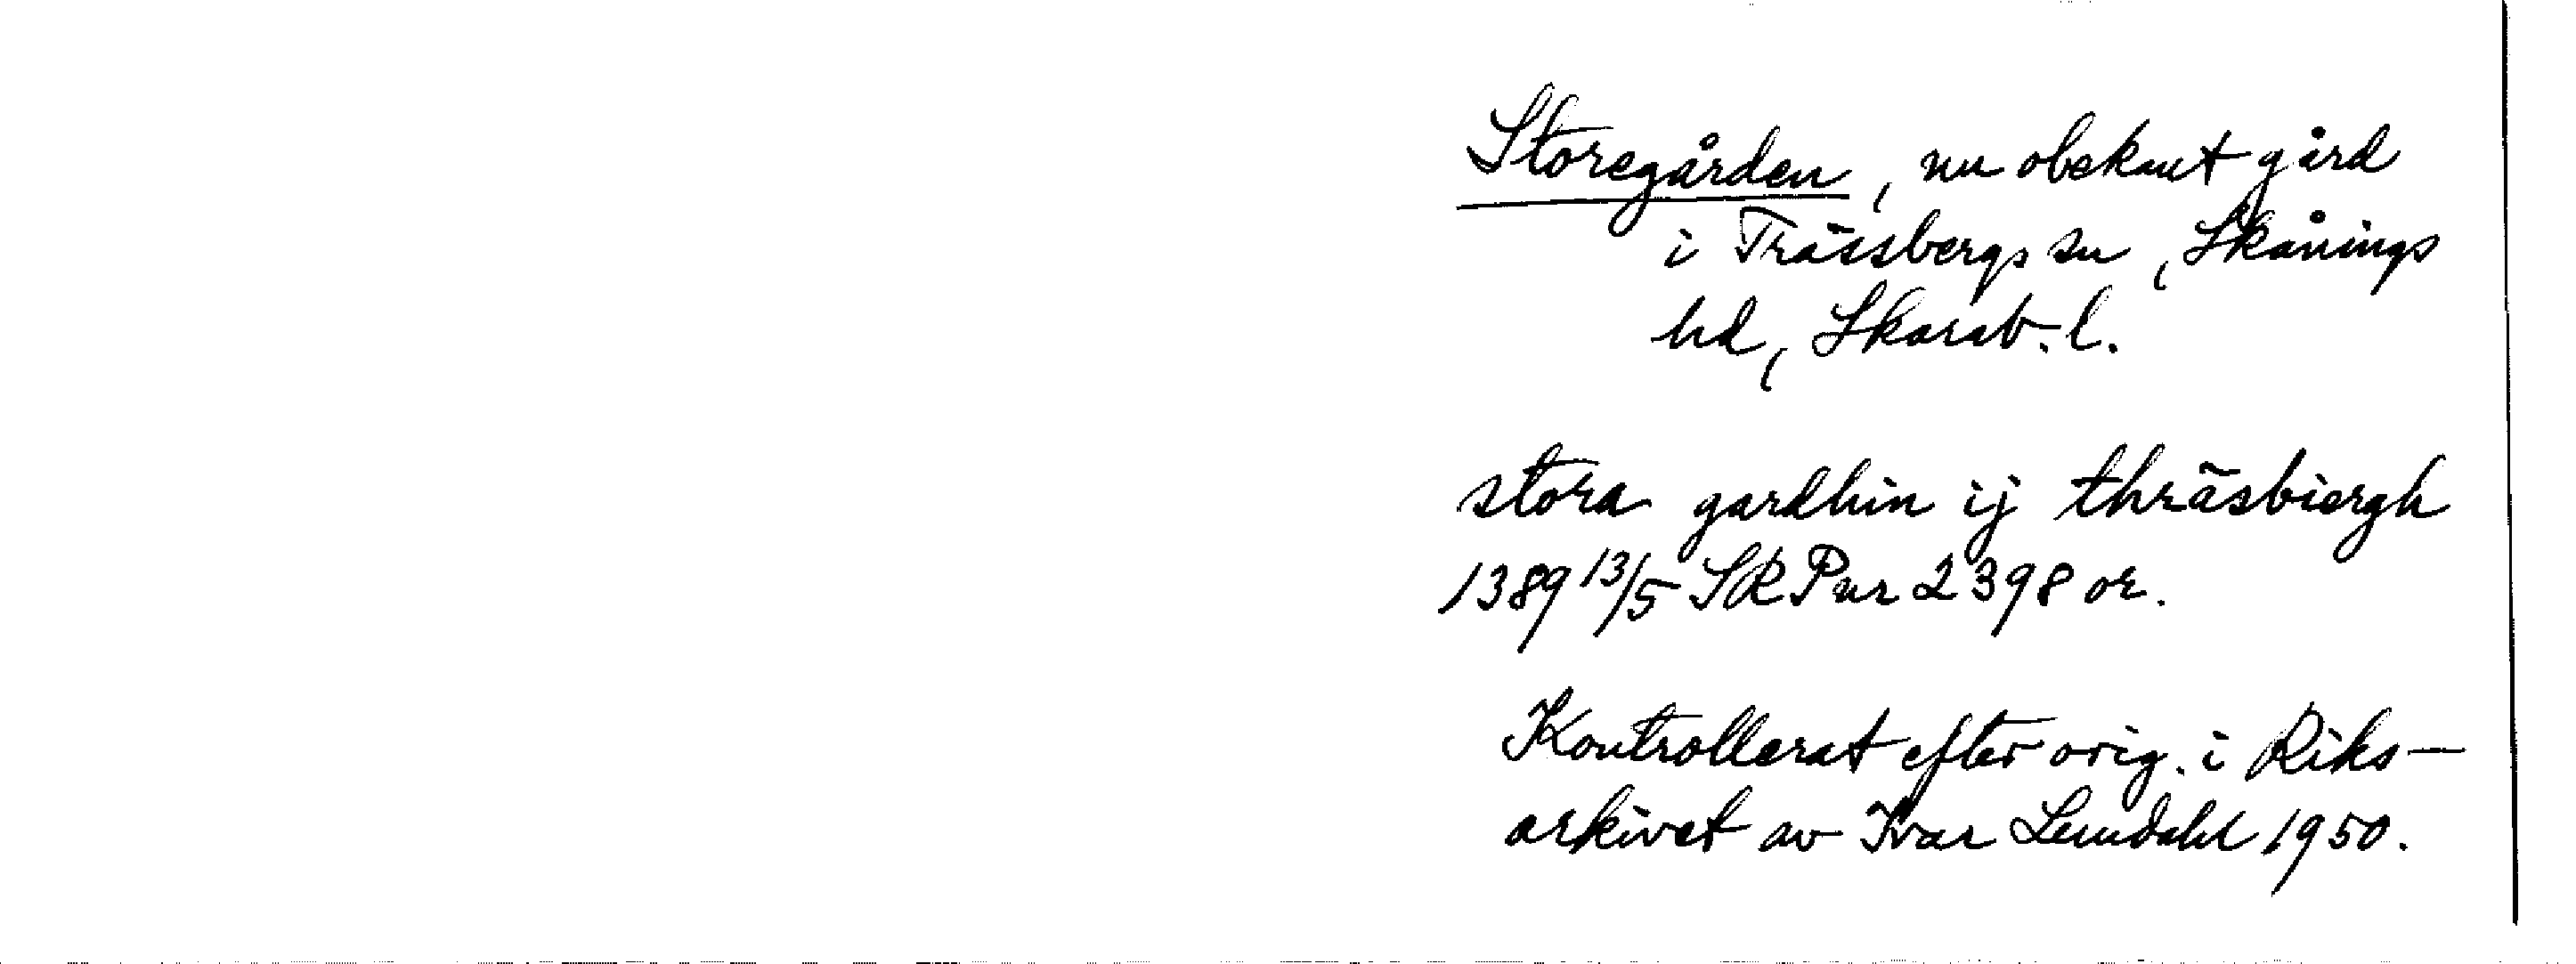 Storegården, nu obekant gård
i Trässbergs sn, Skånings
hd, Skarab. l.
stora gardhin ij thräsbiergh
1389 13/5 SRP nr 2398 or.
Kontrollerat efter orig. i Riks-
arkivet av Ivar Lundahl 1950.